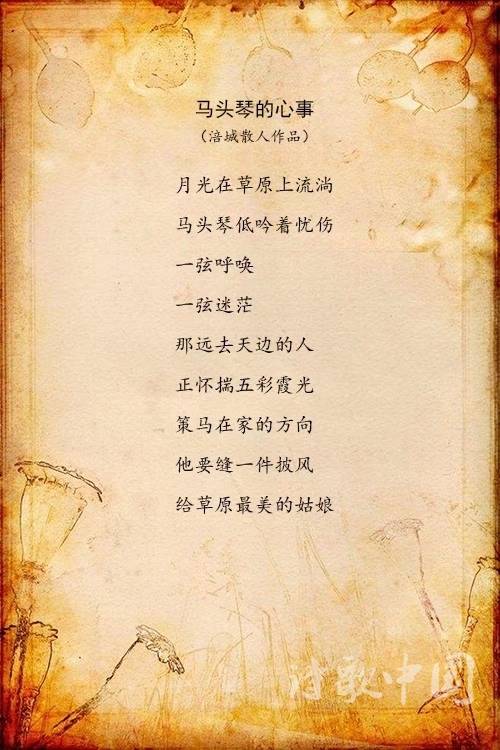 马头琴的心事
（涪城散人作品）
月光在草原上流淌
马头琴低吟着忧伤
一弦呼唤
一弦迷茫
那远去天边的人
正怀揣五彩霞光
策马在家的方向
他要缝一件披风
给草原最美的姑娘
诗歌中国